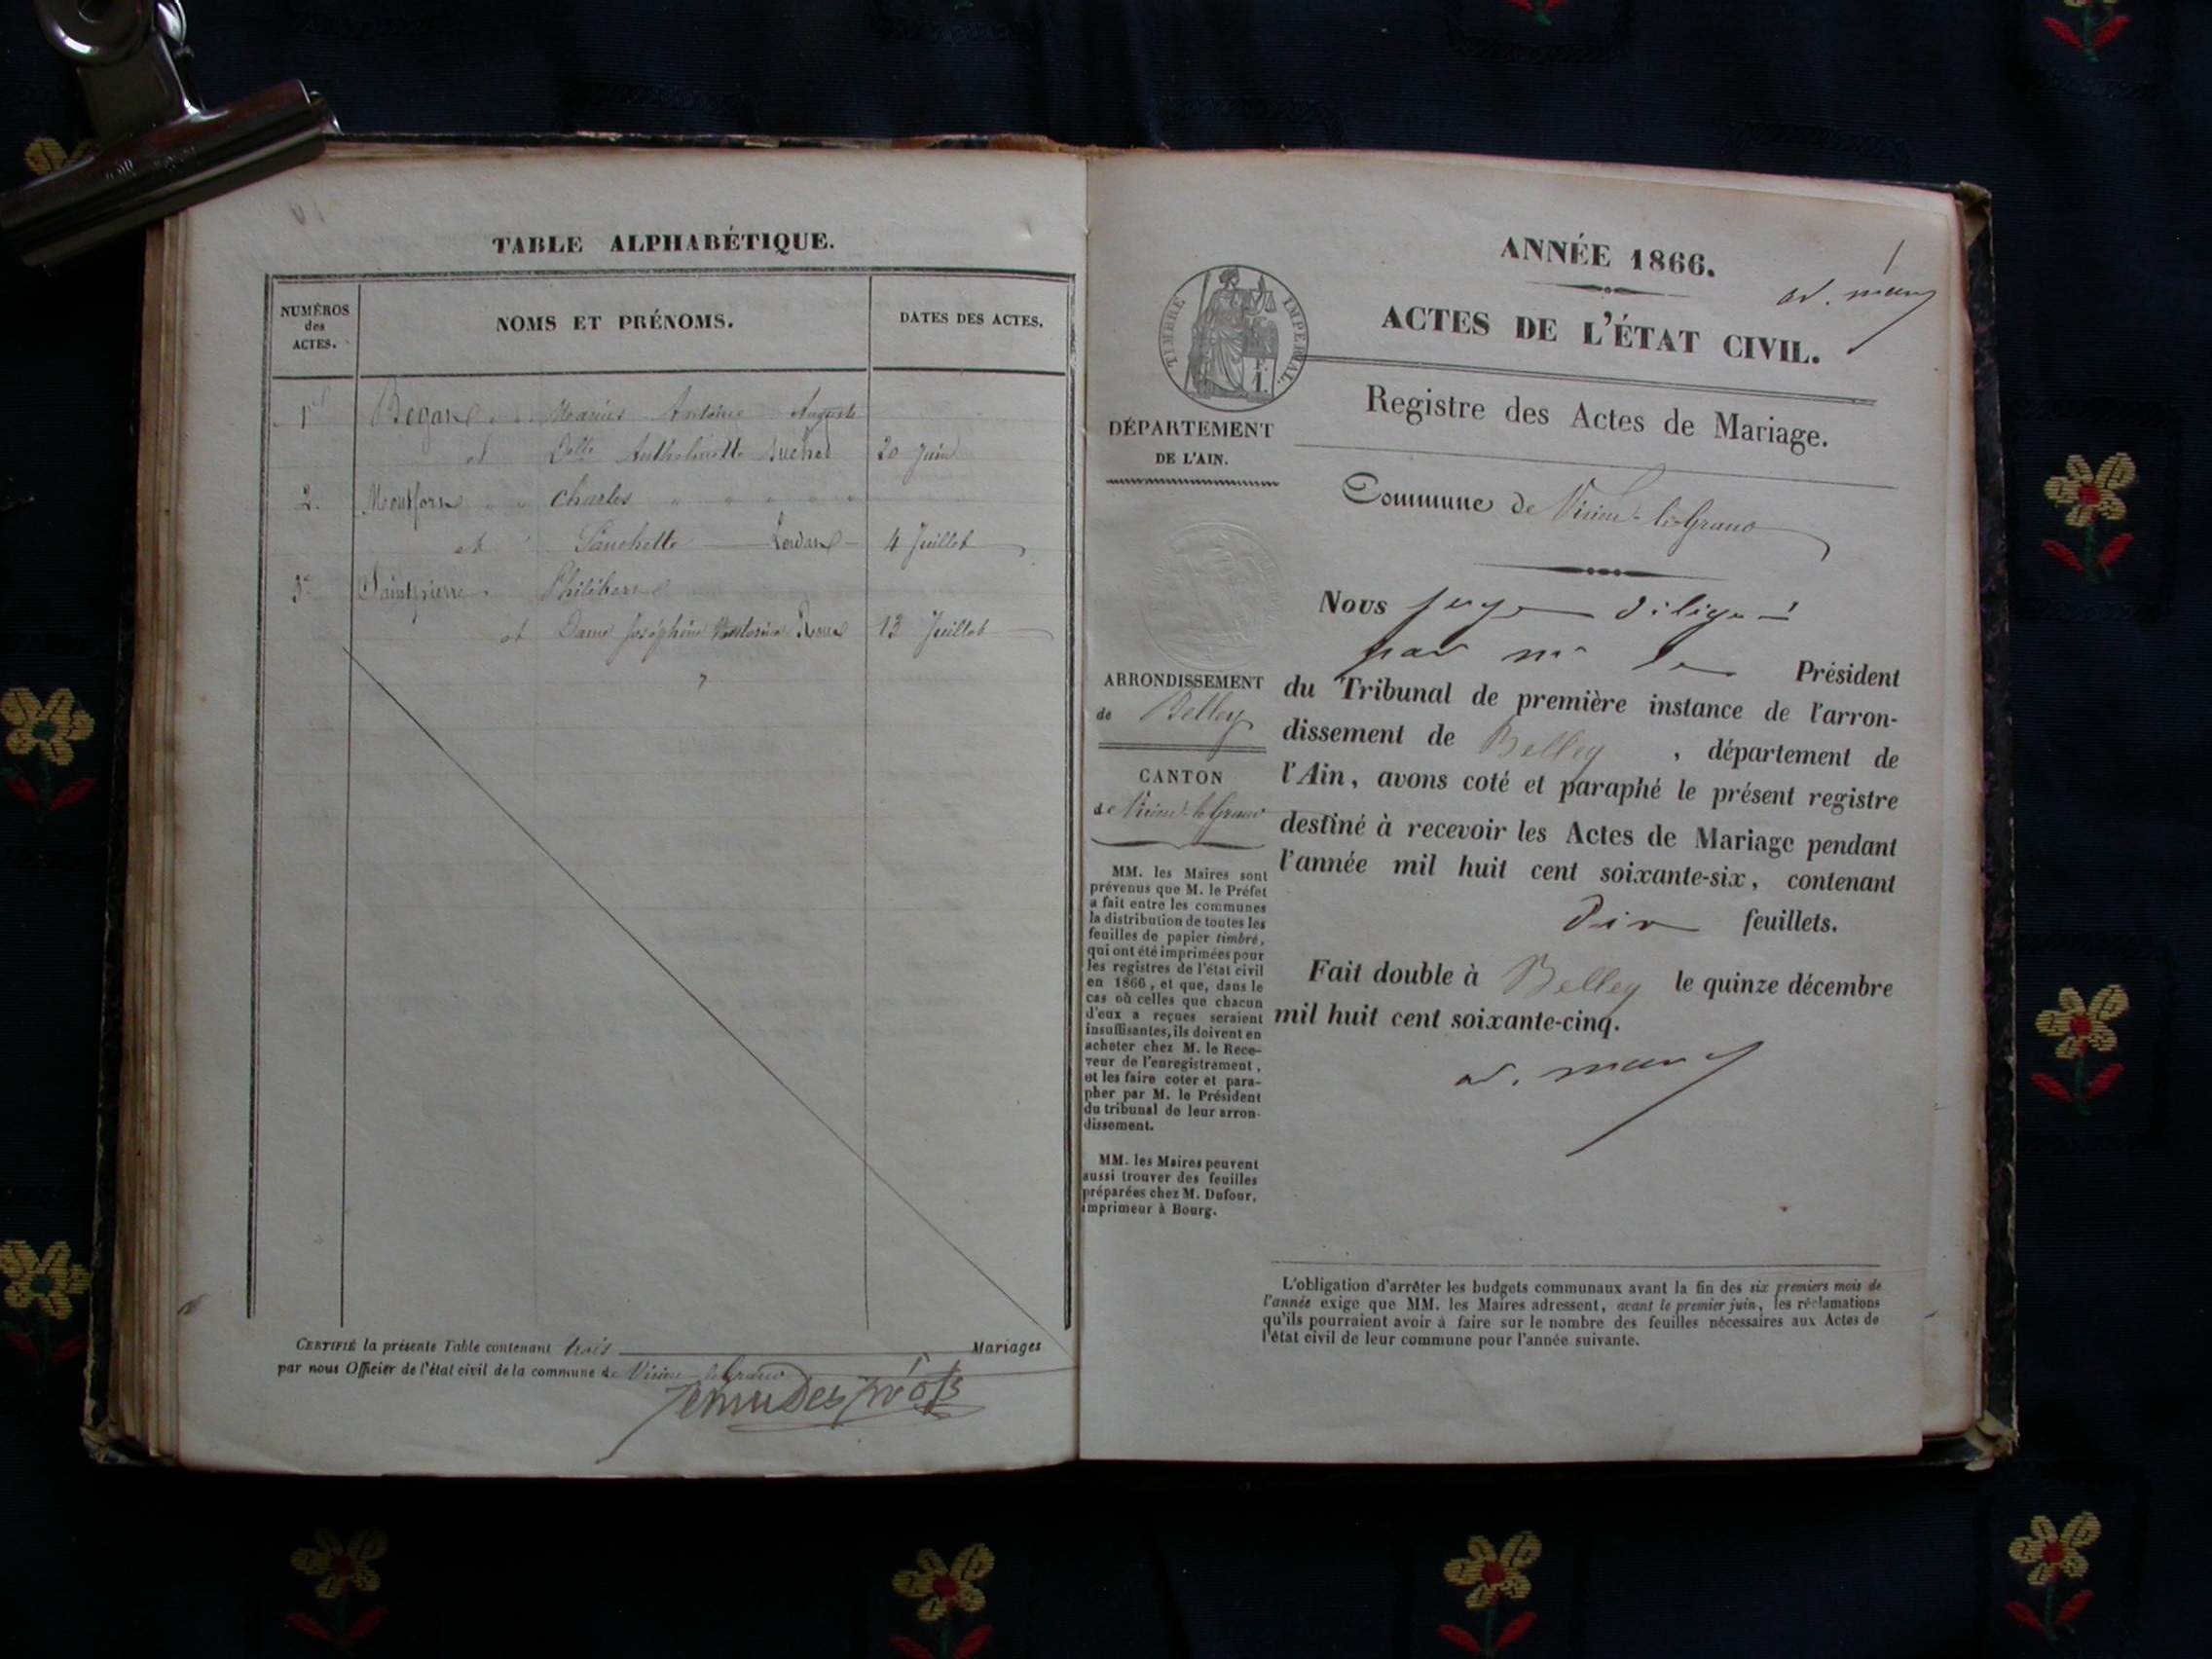 TABLE ALPHABÉTIQUE.
NUMÉROS
des
ACTES.
NOMS ET PRÉNOMS.
DATES DES ACTES.
1er Marius Antoine Auguste
et Delle Suchet 20 Juin
2. Charles
et Panchette 4 Juillet
3e Saintpierre Philibert
et Dame Joséphine 13 Juillet
CERTIFIÉ la présente Table contenant trois Mariages
par nous Officier de l'état civil de la commune de Virieu-le-Grand
ANNÉE 1866.
1
ACTES DE L'ÉTAT CIVIL.
TIMBRE IMPÉRIAL.
1 F.
Registre des Actes de Mariage.
DÉPARTEMENT
DE L'AIN.
Commune de Virieu-le-Grand
Nous juge
par Mr le Président
du Tribunal de première instance de l'arron-
dissement de Belley, département de
l'Ain, avons coté et paraphé le présent registre
destiné à recevoir les Actes de Mariage pendant
l'année mil huit cent soixante-six, contenant
Dix feuillets.
Fait double à Belley le quinze décembre
mil huit cent soixante-cinq.
ARRONDISSEMENT
de Belley
CANTON
de Virieu-le-Grand
MM. les Maires sont
prévenus que M. le Préfet
a fait entre les communes
la distribution de toutes les
feuilles de papier timbré,
qui ont été imprimées pour
les registres de l'état civil
en 1866, et que, dans le
cas où celles que chacun
d'eux a reçues seraient
insuffisantes, ils doivent en
acheter chez M. le Rece-
veur de l'enregistrement,
et les faire coter et para-
pher par M. le Président
du tribunal de leur arron-
dissement.
MM. les Maires peuvent
aussi trouver des feuilles
préparées chez M. Dufour,
imprimeur à Bourg.
L'obligation d'arrêter les budgets communaux avant la fin des six premiers mois de
l'année exige que MM. les Maires adressent, avant le premier juin, les réclamations
qu'ils pourraient avoir à faire sur le nombre des feuilles nécessaires aux Actes de
l'état civil de leur commune pour l'année suivante.